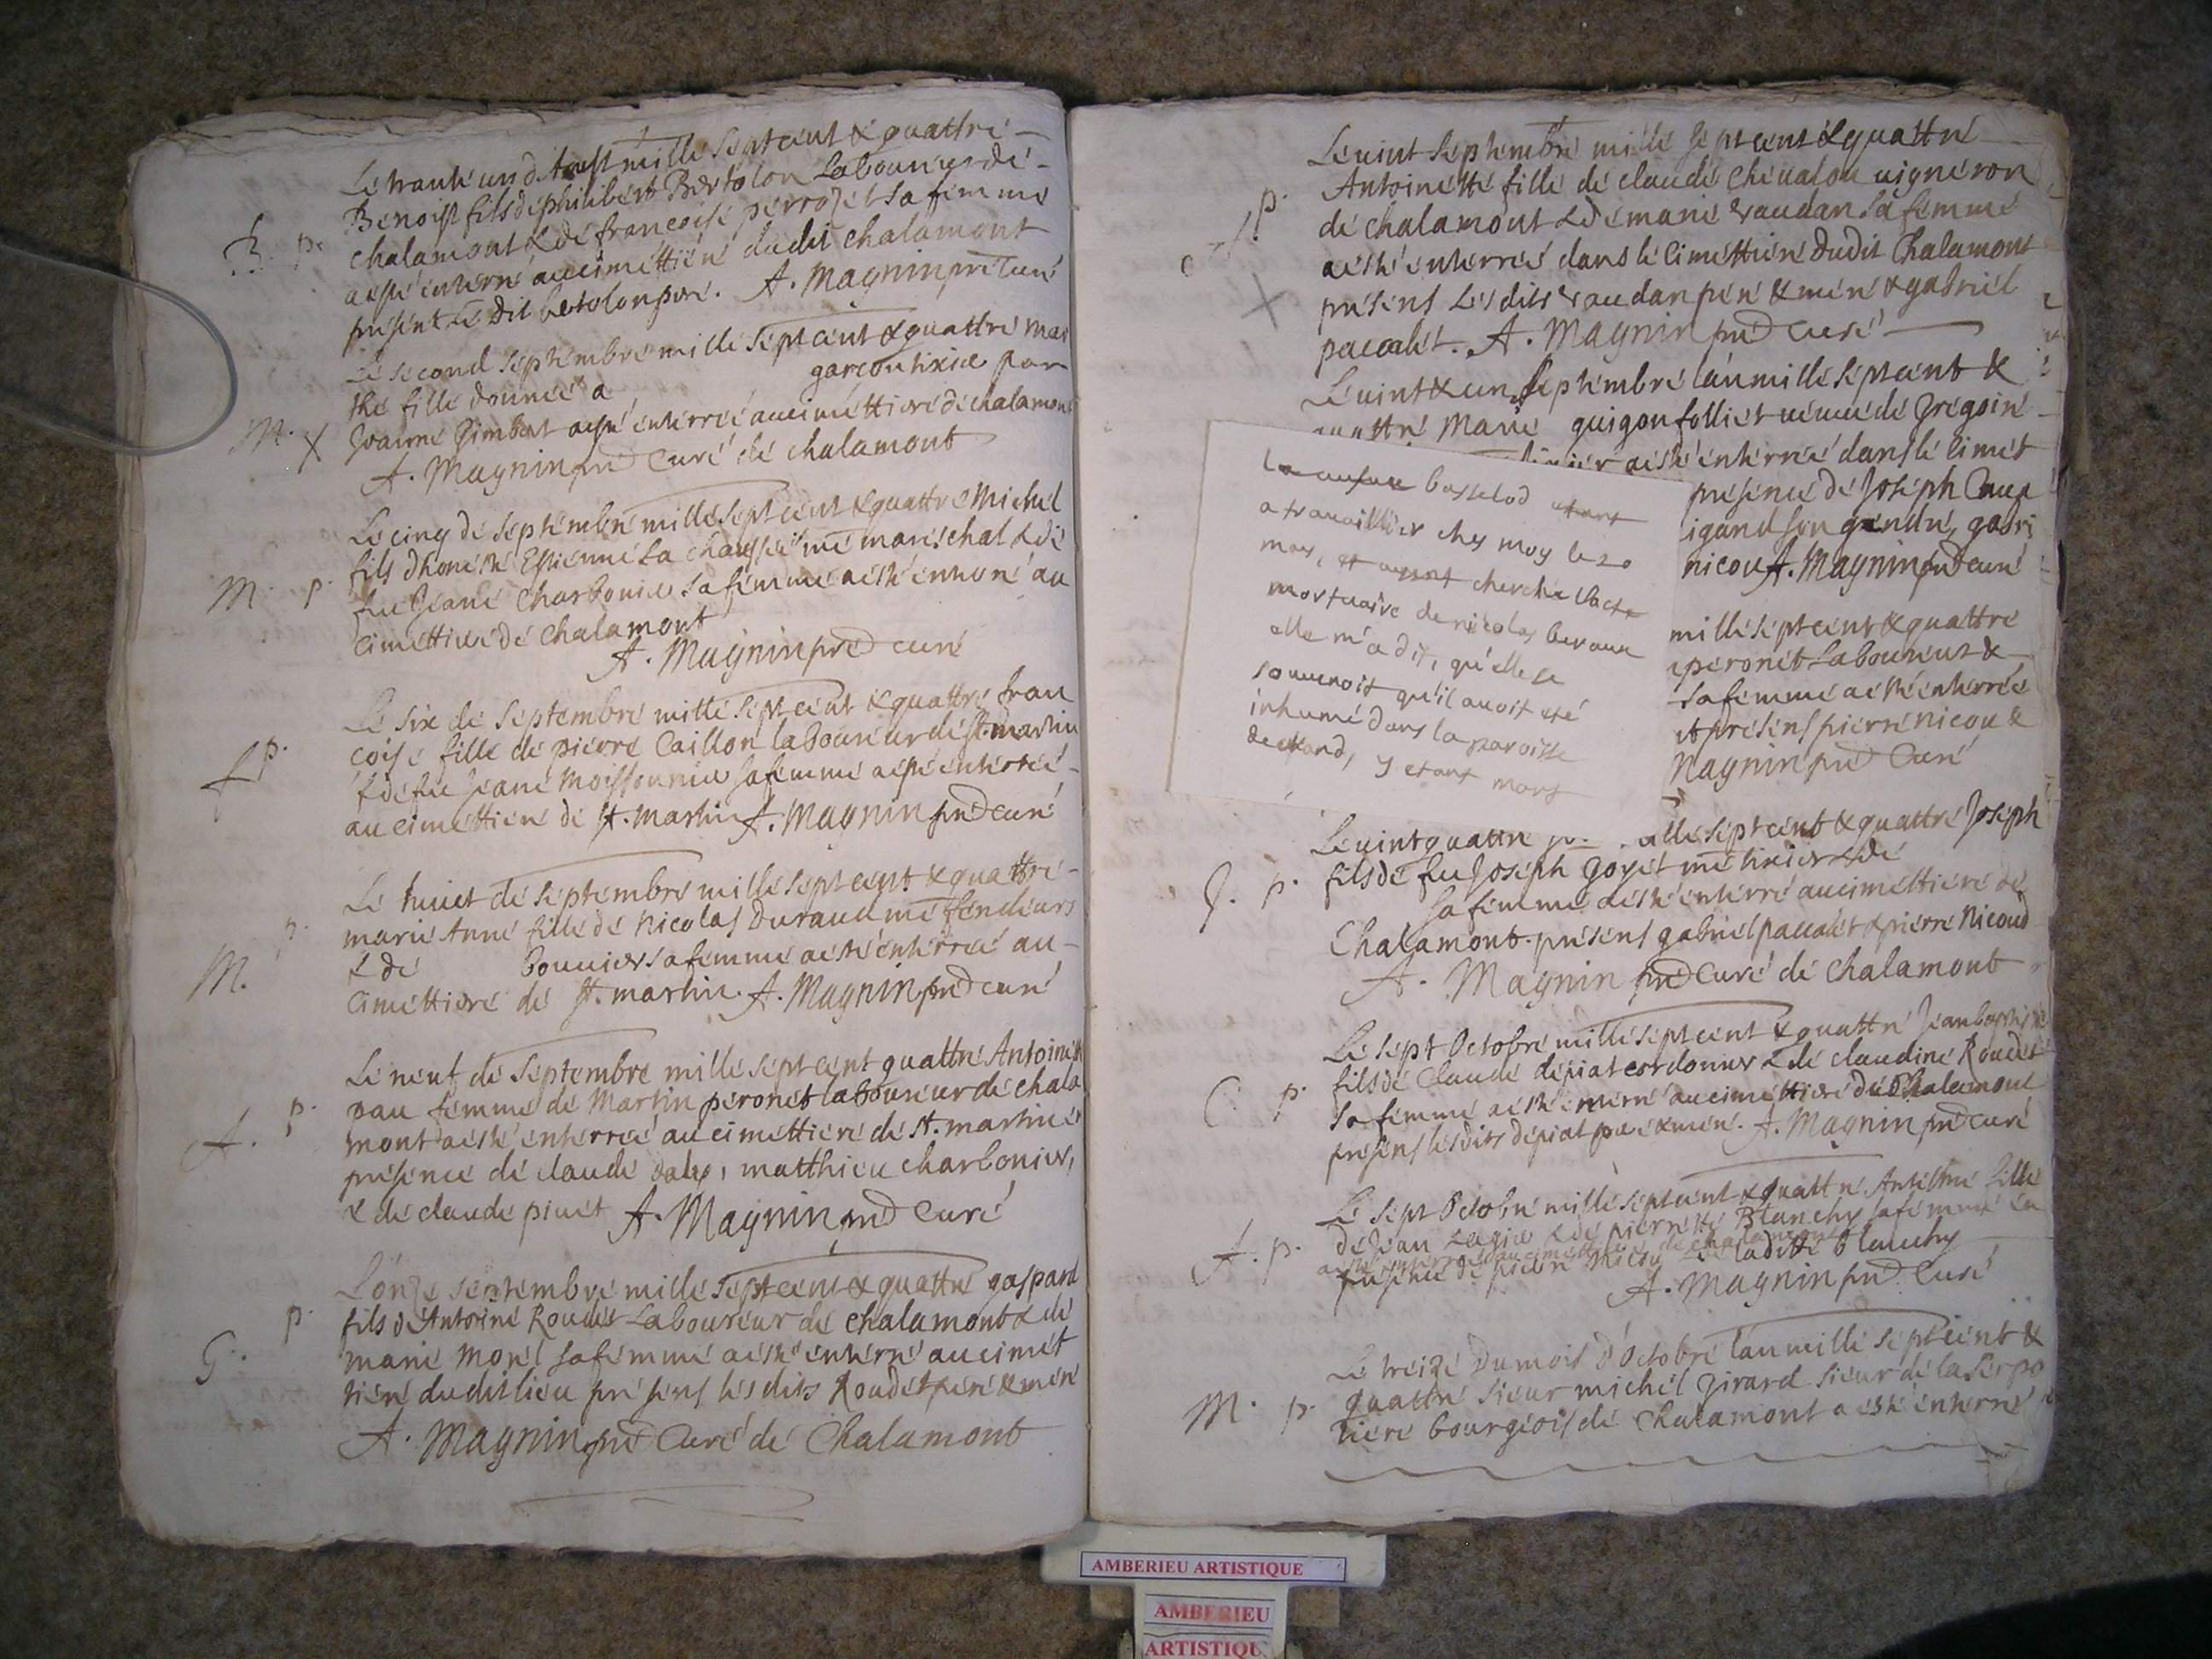 Le trante un d'Aoust mille sept cent & quattre
Benoist fils de philibert Bertolon Laboureur de
B. p. chalamont & de francoise perrozet sa femme
a esté enterré au cimettiere dudit chalamont
present le dit bertolon pere. A. Magnin pre Curé
Le second septembre mille sept cent & quattre mar
the fille donneé a garcon tixier par
M. X Jeanne Gimbert a esté enterreé au cimettiere de chalamont
A. Magnin pre Curé de chalamont
Le cinq de septembre mille sept cent & quattre Michel
fils dhoneste Estienne La chaussee me mareschal & de
M. p. feu Jeane Charbonier sa femme a esté enterré au
cimettiere de chalamont
A. Magnin pre curé
Le six de septembre mille sept cent & quattre fran
coise fille de pierre Caillon laboureur de st. martin
f p. & de feu Jeane Moissonnier sa femme a esté enterreé
au cimettiere de st. martin A. Magnin pre curé
Le huict de septembre mille sept cent & quattre
p. marie Anne fille de Nicolas Durand me fendeurs
M. & de bouvier sa femme a esté enterreé au
cimettiere de st. martin. A. Magnin pre curé
Le neuf de septembre mille sept cent quattre Antoinet
pau femme de Martin peronet laboureur de chala
A. p. mont a esté enterreé au cimettiere de st. martin
presence de claude , matthieu charbonier,
& de claude pivet A. Magnin pre Curé
L'onze septembre mille sept cent & quattre gaspard
p. fils d'Antoine Roudet Laboureur de chalamont & de
G. marie Morel sa femme a esté enterré au cimet
tiere dudit lieu presens les dits Roudet pere & mere
A. Magnin pre Curé de Chalamont
Le vint septembre mille sept cent & quattre
p. Antoinette fille de claude chevalon vigneron
A de chalamont & de marie vaudan sa femme
a esté enterreé dans le cimettiere dudit Chalamont
X presens les dits vaudan pere & mere & gabriel
paccalet. A. Magnin pre Curé
Le vint & un septembre l'an mille sept cent &
quattre Marie guigon folliet veuve de Gregoire
a esté enterreé dans le cimet
presence de Joseph
igand son gendre, gabri
nicou A. Magnin pre curé
mille sept cent & quattre
peronet Laboureur &
sa femme a esté enterreé
presens pierre nicou &
Magnin pre Curé
bosselod etant
a travaillier chez moy le 20
may, et ayant cherché l'acte
mortuaire de nicolas
elle m'a dit, qu'elle se
souvenoit qu'il avoit eté
inhumé dans la paroisse
de , y etant mort
Le vint quattre mille sept cent & quattre Joseph
J. p. fils de feu Joseph Goyet me tixier & de
sa femme a esté enterré au cimettiere de
Chalamont. presens gabriel paccalet & pierre Nicoud
A. Magnin pre Curé de chalamont
Le sept Octobre mille sept cent & quattre Jean baptiste
C. p. fils de Claude depiat cordonier & de claudine Roudet
sa femme a esté enterré au cimettiere de Chalamont
presens les dits depiat pere & mere. A. Magnin pre curé
Le sept Octobre mille sept cent & quattre Antelme fille
A. p. de Jean & de pierrette Blanchy sa femme en
a esté enterreé au cimettiere de chalamont
presence de pierre Nicou & de la ditte Blanchy
A. Magnin pre Curé
Le treize du mois d'Octobre l'an mille sept cent &
M. p. quattre sieur michel Girard sieur de la serpo
liere bourgeois de Chalamont a esté enterré
AMBERIEU ARTISTIQUE
AMBERIEU
ARTISTIQU